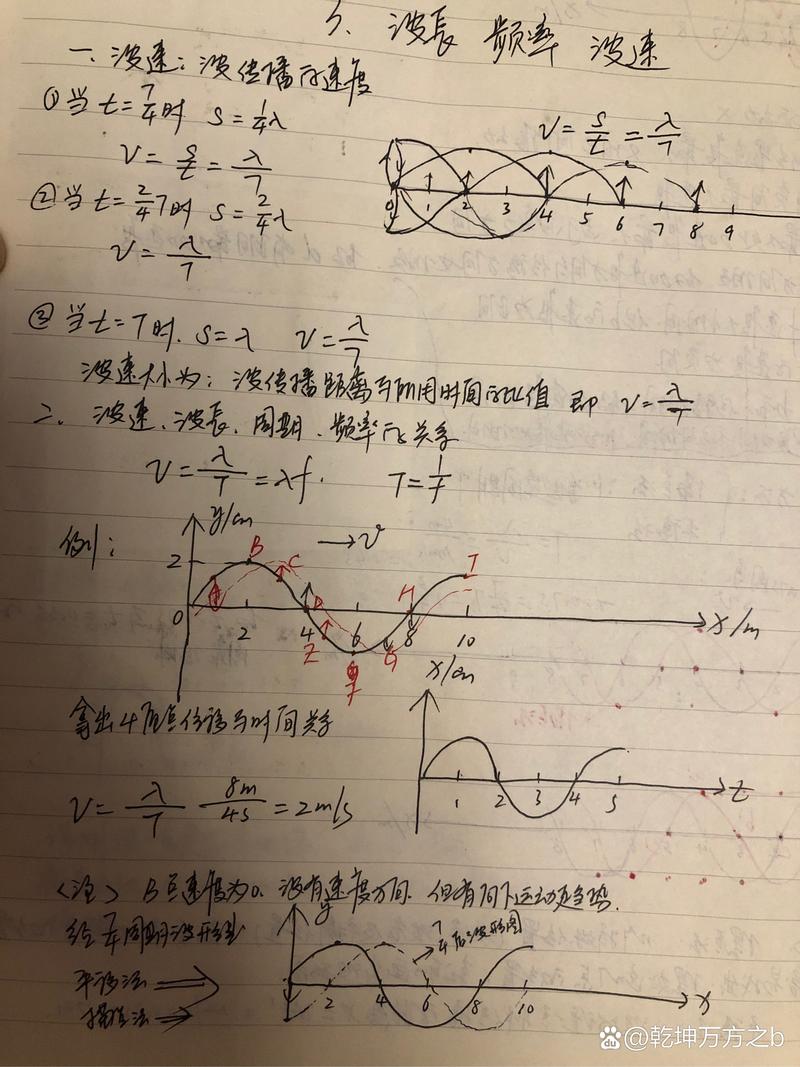 3、波長 频率 波速
一、波速:波传播的速度
①当t=T/4时 S=1/4λ
V=S/t=λ/T
V=S/t=λ/T
②当t=2/4T时 S=2/4λ
V=λ/T
0 1 2 3 4 5 6 7 8 9
③当t=T时. S=λ V=λ/T
波速大小为:波传播距离与所用时间的比值 即 V=λ/T
二、波速、波長、周期、频率的关系
V=λ/T=λf. T=1/f
例:
y/cm
→v
2
B C D Z F G H I
0 2 4 6 8 10
X/m
拿出4质点位移与时间关系
X/cm
1 2 3 4 5 t
V=λ/T 8m/4s=2m/s
〈注〉B点速度为0.没有速度方向.但有向下运动趋势.
经T/4周期波形图
y
T/4后波形图
平移法
描点法
2 4 6 8 10 x
Baidu 百度 @乾坤万方之b